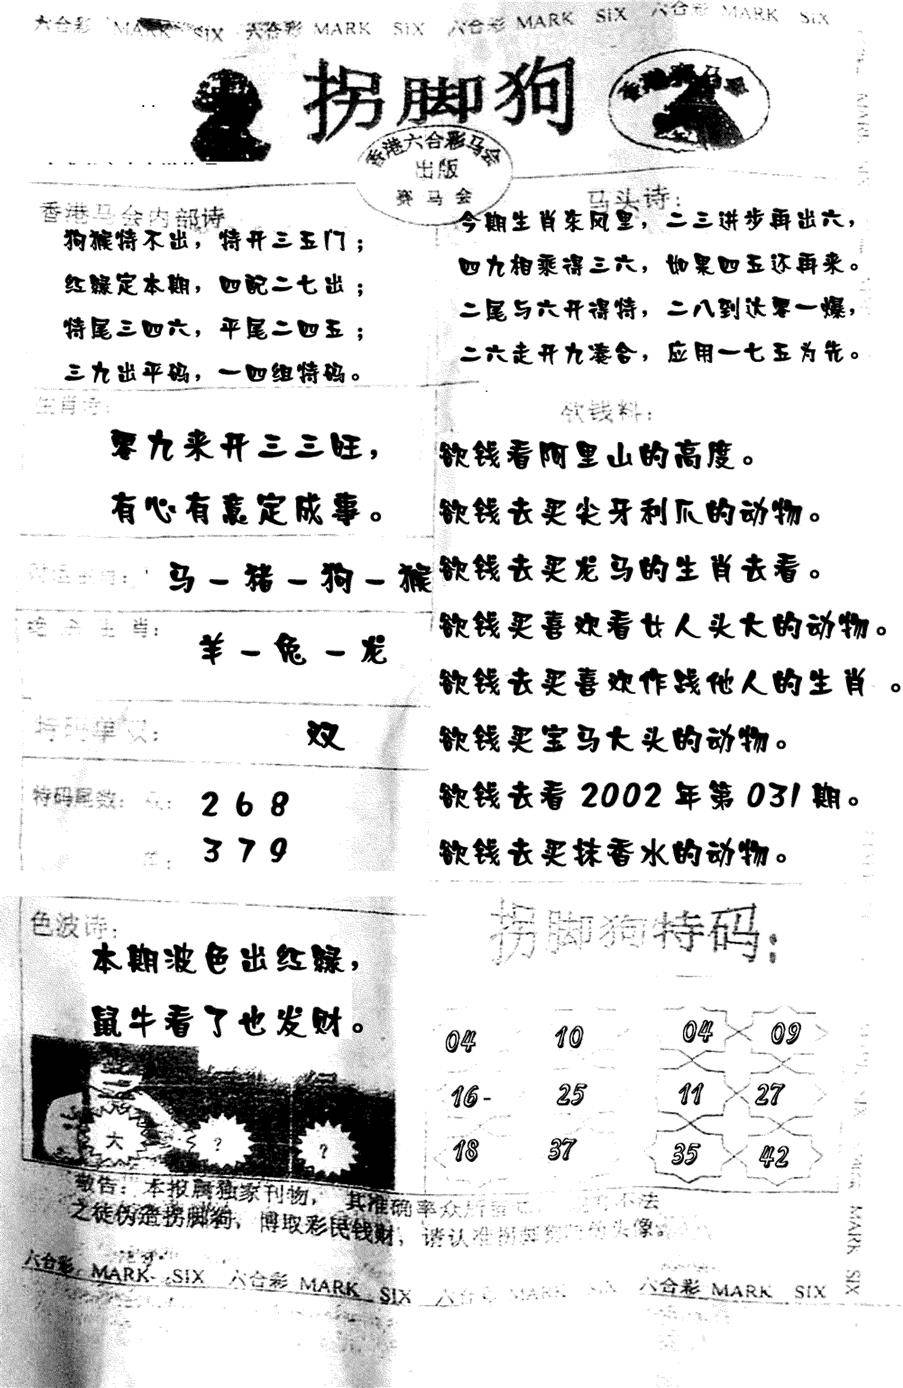 六合彩 MARK SIX 六合彩 MARK SIX 六合彩 MARK SIX 六合彩 MARK SIX
拐脚狗
香港赛马会
香港六合彩马会
出版
赛马会
香港马会内部诗
狗猴特不出，特开三五门；
红绿定本期，四配二七出；
特尾三四六，平尾二四五；
三九出平码，一四组特码。
马头诗：
今期生肖东风里，二三进步再出六，
四九相乘得三六，如果四五还再来。
二尾与六开得特，二八到达零一爆，
二六走开九凑合，应用一七五为先。
生肖诗：
零九来开三三旺，
有心有意定成事。
马－猪－狗－猴
绝杀生肖：
羊－兔－龙
特码单双：
双
特码尾数：双：
2 6 8
单：
3 7 9
欲钱料：
欲钱看阿里山的高度。
欲钱去买尖牙利爪的动物。
欲钱去买龙马的生肖去看。
欲钱买喜欢看女人头大的动物。
欲钱去买喜欢作践他人的生肖。
欲钱买宝马大头的动物。
欲钱去看2002年第031期。
欲钱去买抹香水的动物。
色波诗：
本期波色出红绿，
鼠牛看了也发财。
大 ? ?
拐脚狗特码：
04 10 04 09
16- 25 11 27
18 37 35 42
敬告：本报属独家刊物，其准确率众所
不法
之徒伪造拐脚狗，博取彩民钱财，请认准拐脚狗
头像。
六合彩 MARK SIX 六合彩 MARK SIX 六合彩 MARK SIX 六合彩 MARK SIX
MARK SIX